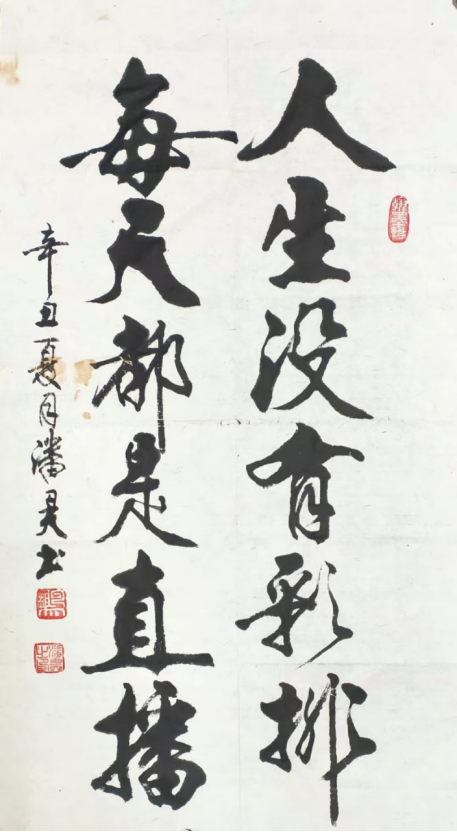 人生没有彩排
每天都是直播
辛丑夏月潘昊书